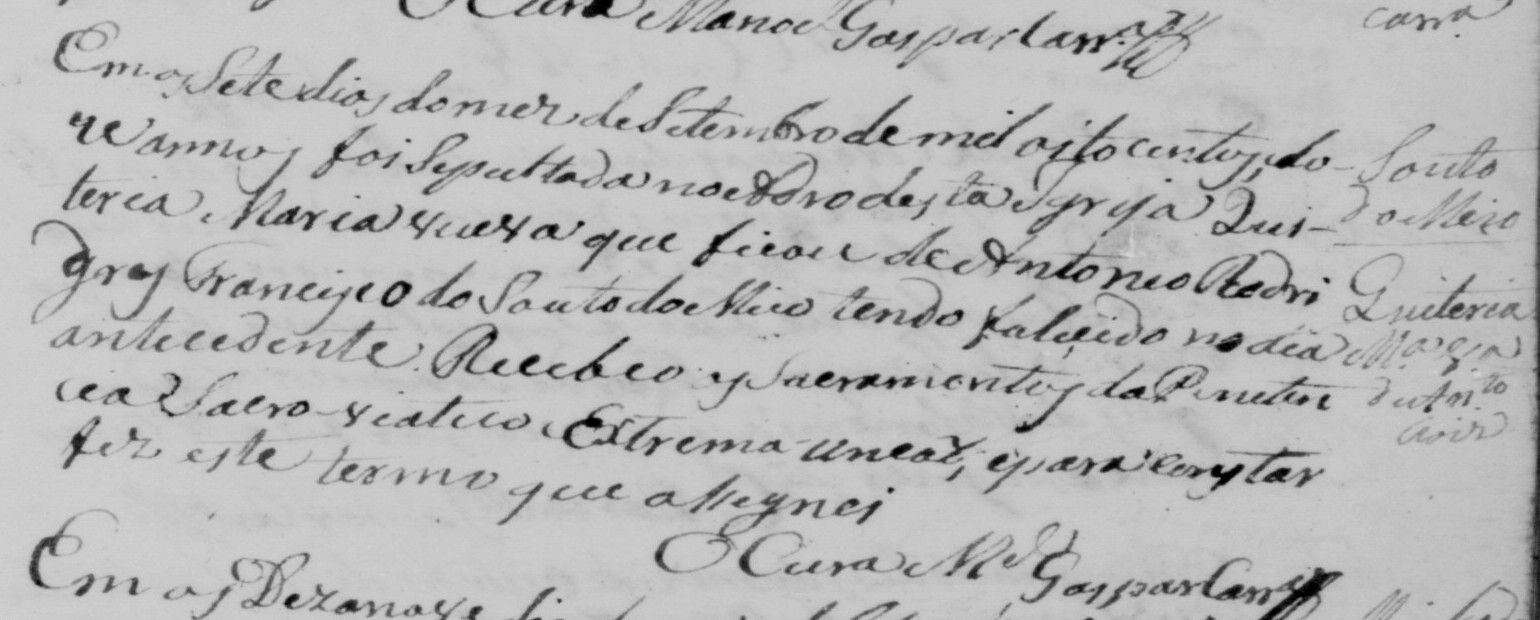 O Cura Manoel Gaspar Carr.ª
Carr.ª
Em os Sete dias do mez de Setembro de mil oito centos, e do-
ze annos foi Sepultada no Adro desta Igreja Qui-
teria Maria viuva que ficou de Antonio Rodri
gres Francisco do Souto do Meio tendo falecido no dia
antecedente. Recebeo os Sacramentos da Peneten
cia Sacro-viatico e Extrema-uncaõ, e para constar
fez este termo que assegnei
O Cura M.el Gaspar Carr.ª
Souto
do Meio
Quiteria
M.ª
de An.to
Em os Dezanove